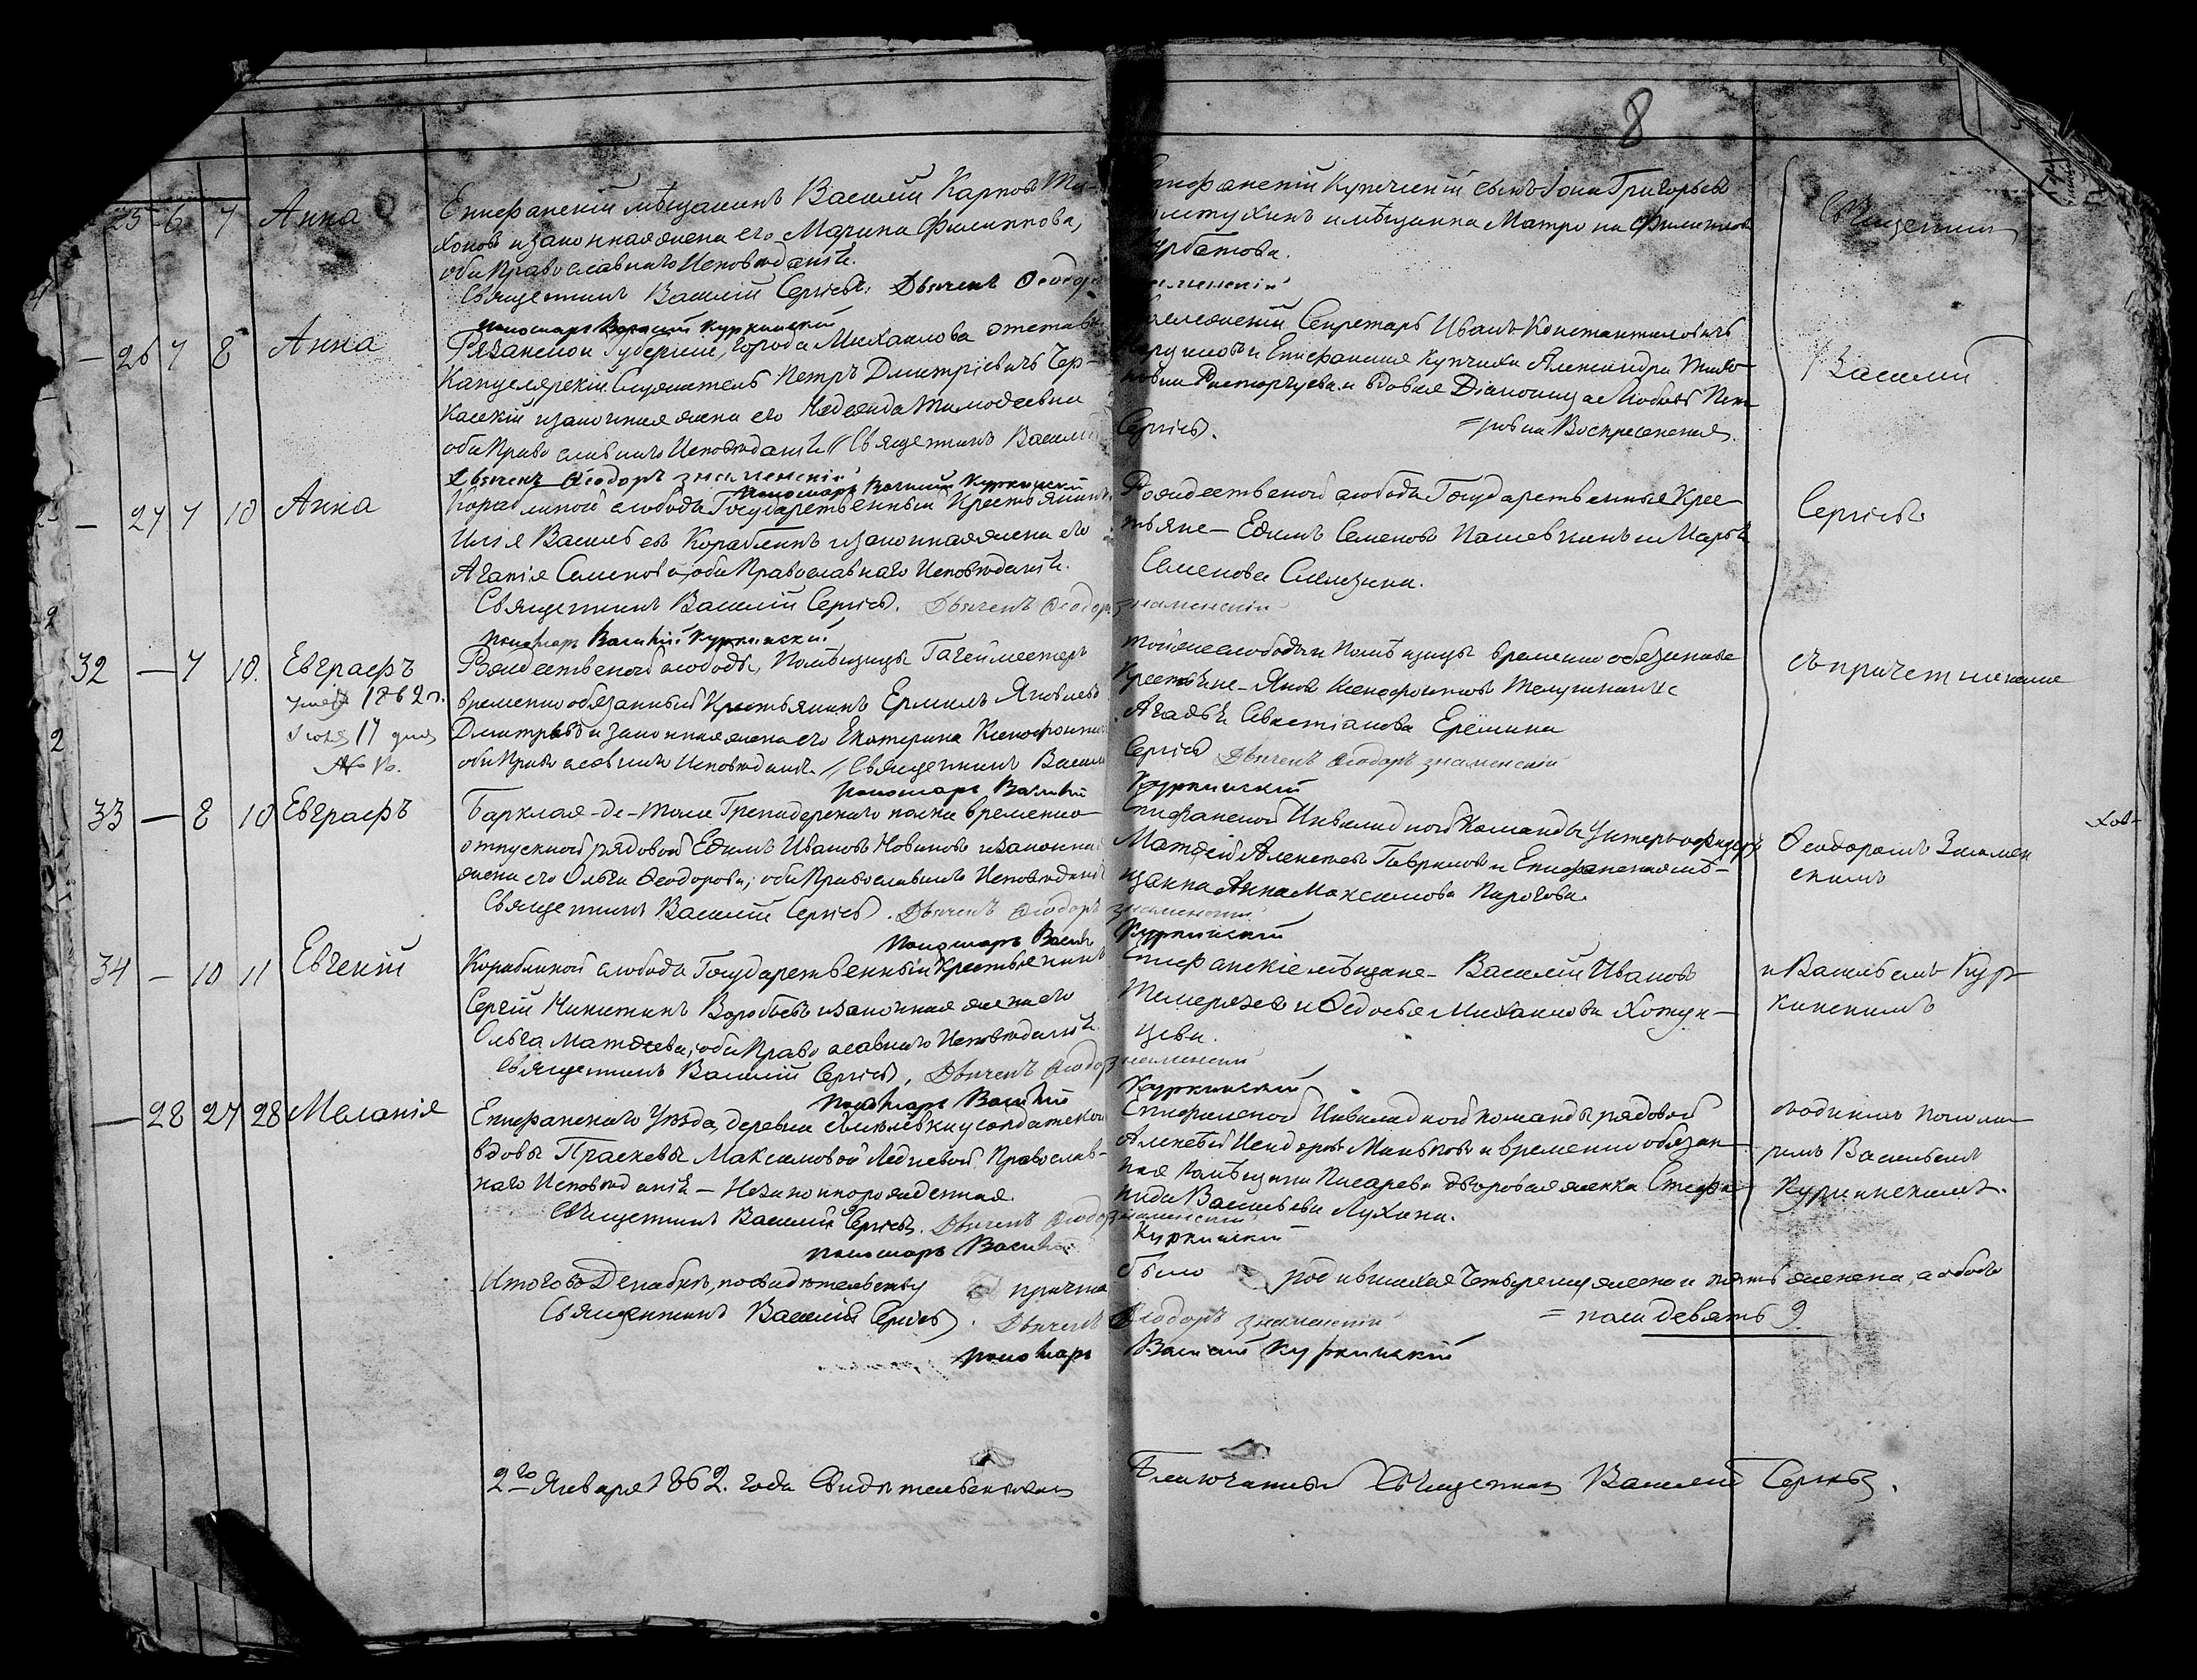 8
25 6 7 Анна
Епифанскій мѣщанинъ Василій Карповъ Ти-
хоновъ и законная жена его Марина Филиппова,
оба Православнаго Исповѣданія.
Священникъ Василій Сергіевъ. Дьяченъ Ѳеодоръ
Пономарь Василій Куркинскій
Епифанскій Купеческій сынъ Іона Григорьевъ
и мѣщанка Матрона Филиппова
Священникъ
— 26 7 8 Анна
Рязанской Губерніи, города Михайлова отставной
Канцелярскій Служитель Петръ Дмитріевичъ Чер-
касскій и законная жена его Надежда Тимоѳеевна
оба Православнаго Исповѣданія // Священникъ Василій
Дьяченъ Ѳеодоръ Знаменскій
Пономарь Василій Куркинскій
Секретарь Иванъ Константиновичъ
и Епифанская Купчиха Александра Тихо-
новна Расторгуева и вдовая Діаконица Любовь Пет-
Сергіевъ.
=ровна Воскресенская.
Василій
— 27 7 10 Анна
Кораблиной слободы Государственный Крестьянинъ
Илія Васильевъ Кораблинъ и законная жена его
Агапія Семенова, оба Православнаго Исповѣданія.
Священникъ Василій Сергіевъ. Дьяченъ Ѳеодоръ Знаменскій
Пономарь Василій Куркинскій
Рождественской слободы Государственные Крес-
тьяне — Ефимъ Семеновъ и Марья
Семенова
Сергіевъ
32 — 7 10. Евграфъ
умеръ 1862 г.
Іюля 17 дня
Рождественской слободы, Помѣщицы Гагейместеръ
временно обязанный Крестьянинъ Ермилъ Яковлевъ
Дмитріевъ и законная жена его Екатерина Ксенофонтова
оба Православнаго Исповѣданія. // Священникъ Василій
Пономарь Василій
той же слободы и Помѣщицы временно обязанные
Крестьяне — Яковъ Ксенофонтовъ
Агаѳья Севастіанова Ерёмина
Сергіевъ Дьяченъ Ѳеодоръ Знаменскій
Куркинскій
съ причетниками
33 — 8 10 Евграфъ
Барклая-де-Толи Гренадерскаго полка временно-
отпускной рядовой Ефимъ Ивановъ Новиковъ и законная
жена его Ольга Ѳеодорова, оба Православнаго Исповѣданія
Священникъ Василій Сергіевъ. Дьяченъ Ѳеодоръ Знаменскій
Пономарь Василій Куркинскій
Епифанской Инвалидной Команды Унтеръ-офицеръ
Матѳей Алексѣевъ Гавриловъ и Епифанская мѣ-
щанка Анна Максимова Пирогова.
Ѳеодоромъ Знамен
скимъ
34 — 10 11 Евгеній
Кораблиной слободы Государственный Крестьянинъ
Сергій Никитинъ Воробьевъ и законная жена его
Ольга Матѳеева, оба Православнаго Исповѣданія.
Священникъ Василій Сергіевъ, Дьяченъ Ѳеодоръ Знаменскій
Пономарь Василій Куркинскій
Епифанскіе мѣщане — Василій Ивановъ
Темерязевъ и Ѳедосья Михайлова Хотун-
цева.
и Васильемъ Кур-
кинскимъ
— 28 27 28 Меланія
Епифанскаго Уѣзда, деревни у солдатской
вдовы Праскевы Максимовой Ледневой, Православ-
наго Исповѣданія — Незаконнорожденная.
Священникъ Василій Сергіевъ. Дьяченъ Ѳеодоръ Знаменскій
Пономарь Василій Куркинскій
Епифанской Инвалидной команды рядовой
Алексѣй и временно обязан-
ная Помѣщика Писарева дворовая женка Стефа-
нида Васильева Лухина.
понома-
ремъ Васильемъ
Куркинскимъ.
Итого въ Декабрѣ, по свидѣтельству причта было родившихся четыре мужеска и пять женска, а обоего
= пола девять 9
Священникъ Василій Сергіевъ. Дьяченъ Ѳеодоръ Знаменскій
Пономарь Василій Куркинскій
2го Января 1862. года Свидѣтельствовалъ Благочинный Священникъ Василій Сергіевъ.